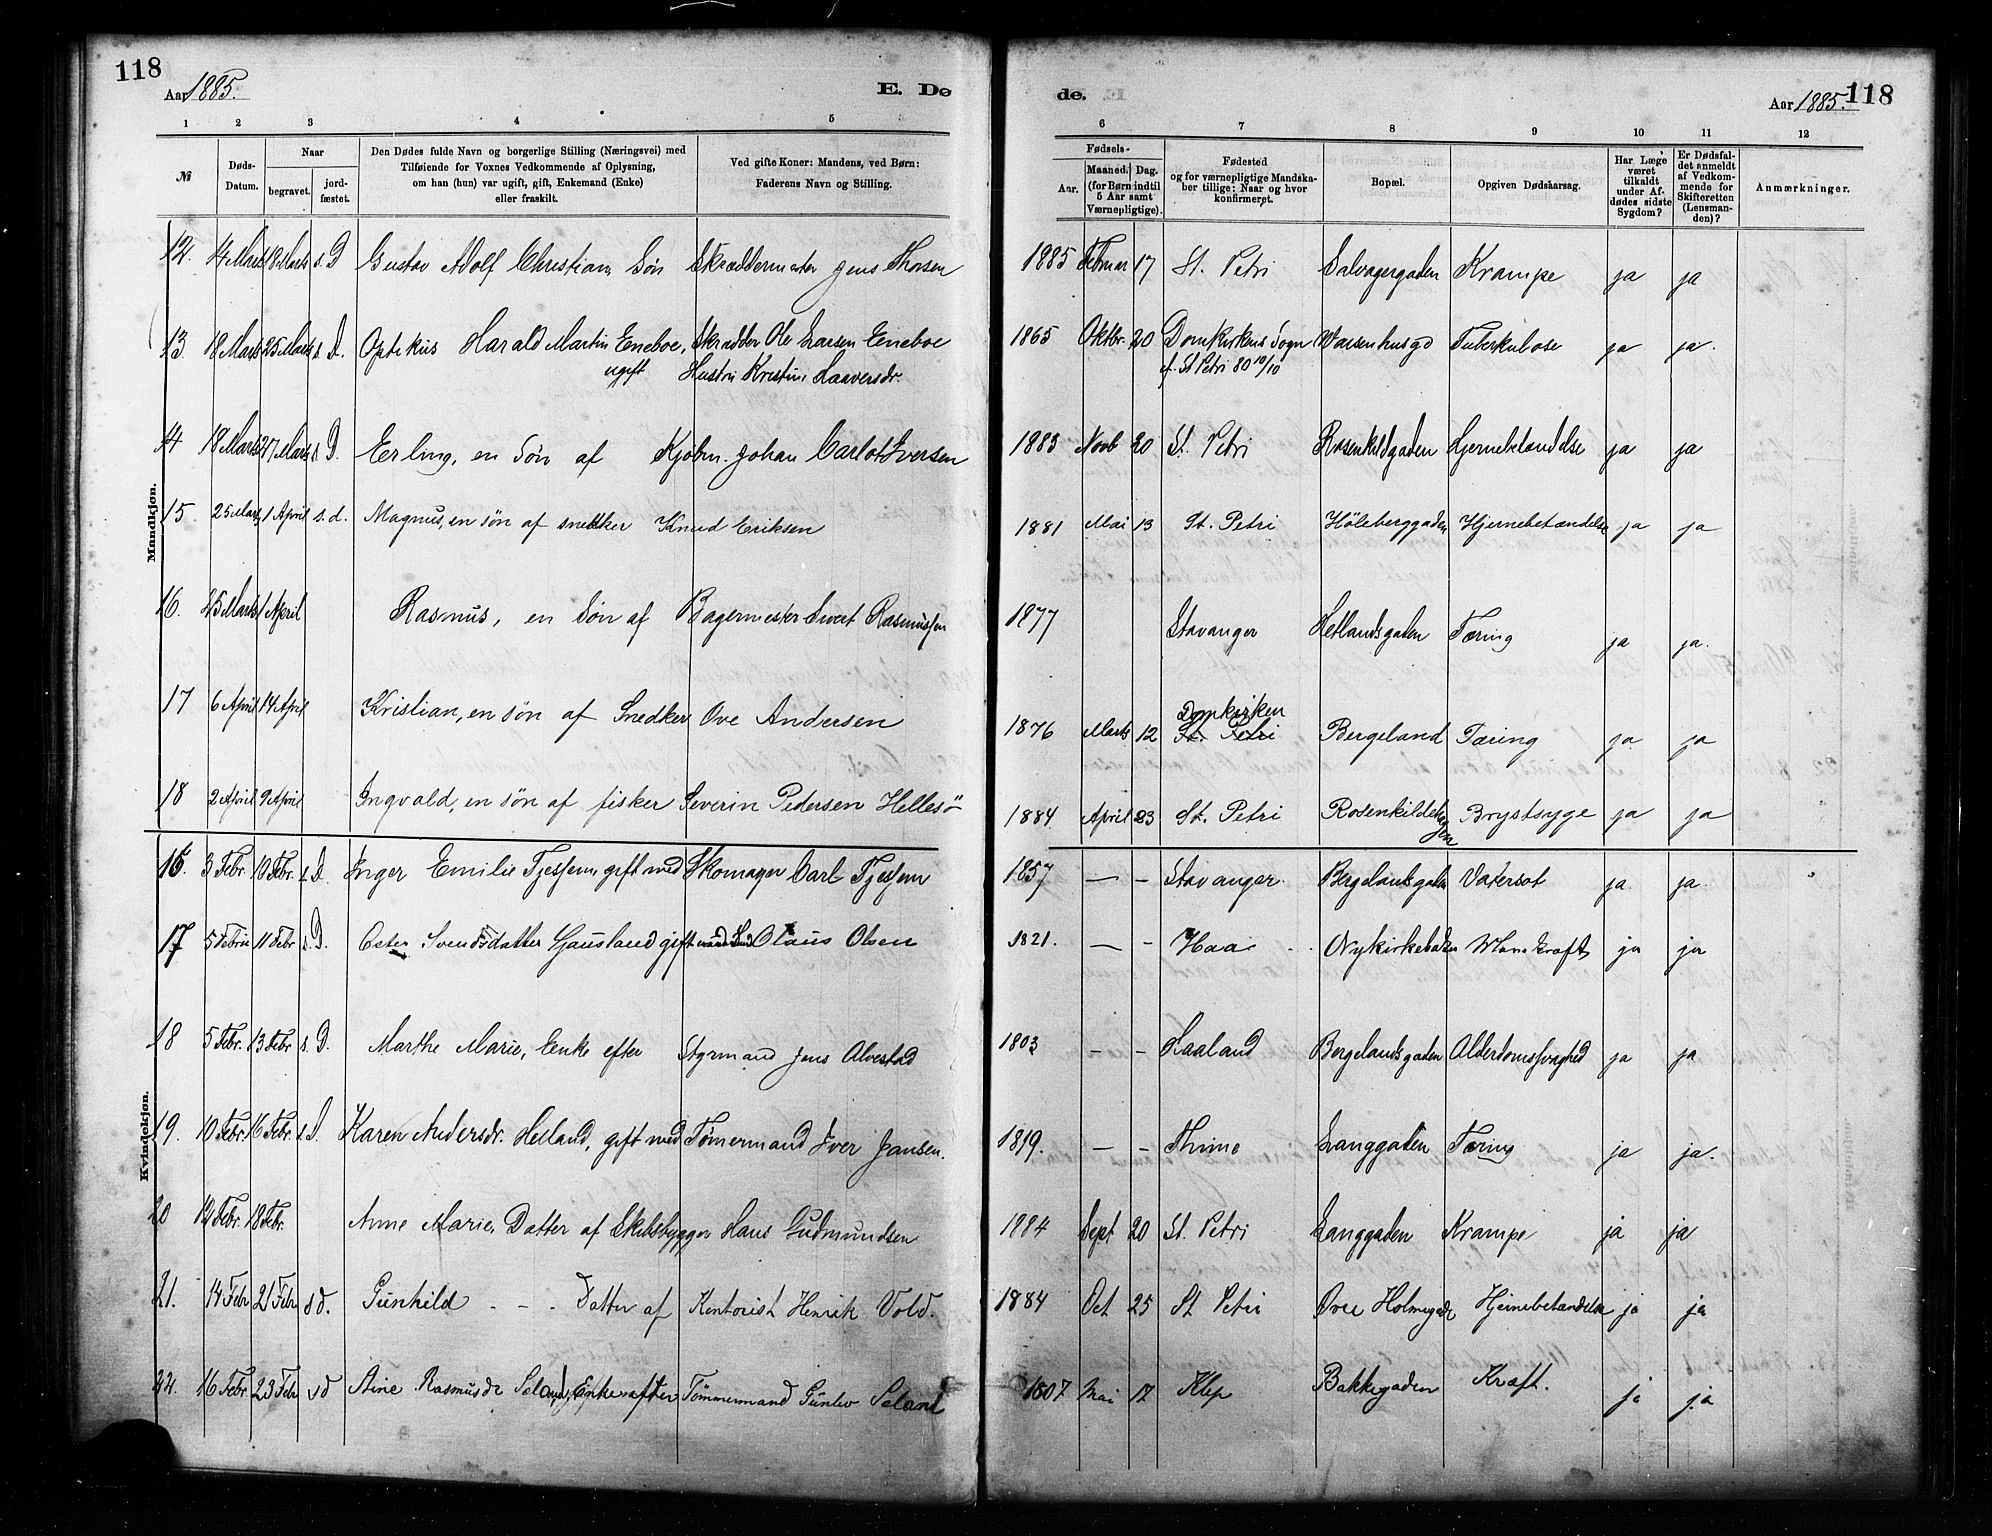 118
Aar 1885.
E. Dø
de.
Aar 1885.
118
1 2 3 4 5 6 7 8 9 10 11 12
№
Døds-Datum.
Naar
begravet.
jord-fæstet.
Den Dødes fulde Navn og borgerlige Stilling (Næringsvei) med
Tilføiende for Voxnes Vedkommende af Oplysning,
om han (hun) var ugift, gift, Enkemand (Enke)
eller fraskilt.
Ved gifte Koner: Mandens, ved Børn:
Faderens Navn og Stilling.
Fødsels-
Aar.
Maaned. Dag.
(for Børn indtil
5 Aar samt
Værnepligtige).
Fødested
og for værnepligtige Mandska-
ber tillige: Naar og hvor
konfirmeret.
Bopæl.
Opgiven Dødsaarsag.
Har Læge
været
tilkaldt
under Af-
dødes sidste
Sygdom?
Er Dødsfal-
det anmeldt
af Vedkom-
mende for
Skifteretten
(Lensman-
den)?
Anmærkninger.
Mandkjøn.
12. 14 Marts 18 Marts s. D Gustav Adolf Christian, Søn Skræddermester Jens Thorsen 1885 Februar 17 St. Petri Salvagergaden Krampe ja ja
13. 18 Marts 25 Marts s D. Optikus Harald Martin Eneboe, Skrædder Ole Larsen Eneboe 1865 Oktbr. 20 Domkirkens Sogn Waisenhusgd Tuberkulose ja ja.
ugift Hustru Kristine Haaversdr. cf. St Petri 80 10/10
14 18 Marts 27 Marts s D. Erling, en Søn af Kjøbm. Johan Carlot Iversen 1883 Novb 20 St. Petri Rosenkildgaden Hjernebetændelse ja ja
15. 25 Marts 1 April s. d. Magnus, en søn af snedker Knud Eriksen 1881 Mai 13 St. Petri Høleberggaden Hjernebetændelse ja ja
16. 25 Marts 1 April Rasmus, en Søn af Bagermester Sivert Rasmussen 1877 Stavanger Hetlandsgaden Tæring ja ja.
17 6 April 14 April Kristian, en søn af Snedker Ove Andersen 1876 Marts 12 Domkirken St. Petri Bergeland Tæring ja ja
18 2 April 9 April Ingvald, en søn af fisker Severin Pedersen Hellesö 1884 April 23 St. Petri Rosenkildehagen Brystsyge ja ja
Kvindekjøn.
16. 3 Febr. 10 Febr. s D. Inger Emilie Tjessem, gift med Skomager Carl Tjessem 1857 — – Stavanger. Bergelandsgaden Vatersot ja ja.
17 5 Febru 11 Febr s. D. Oster Svendsdatter Gausland gift med Olaus Olsen 1821. — – Haa Nykirkebakken ja ja
18 5 Febr. 13 Febr s. D. Marthe Marie, Enke efter Styrmand Jens Alvestad 1803 – – Haaland Bergelandsgaden Alderdomssvaghed ja ja
19. 10 Febr. 16 Febr. s D. Karen Andersdr. Helland, gift med Tømermand Iver Jansen. 1819. — – Thime Langgaden Tæring ja ja.
20 12 Febr. 18 Febr. Anne Marie, Datter af Skibsbygger Hans Gudmundsen 1884 Sept 20 St. Petri Langgaden Krampe ja ja
21. 14 Febr 21 Febr s d. Gunhild – – . Datter af Kontorist Henrik Vold. 1884 Oct 25 St Petri Øvre Holmegade Hjernebetændelse ja ja
22. 16 Febr. 23 Febr s d Ane Rasmusdr Seland, Enke efter Tömmermand Günlev Seland 1807 Mai 17 Klep Bakkegaden Kræft. ja ja